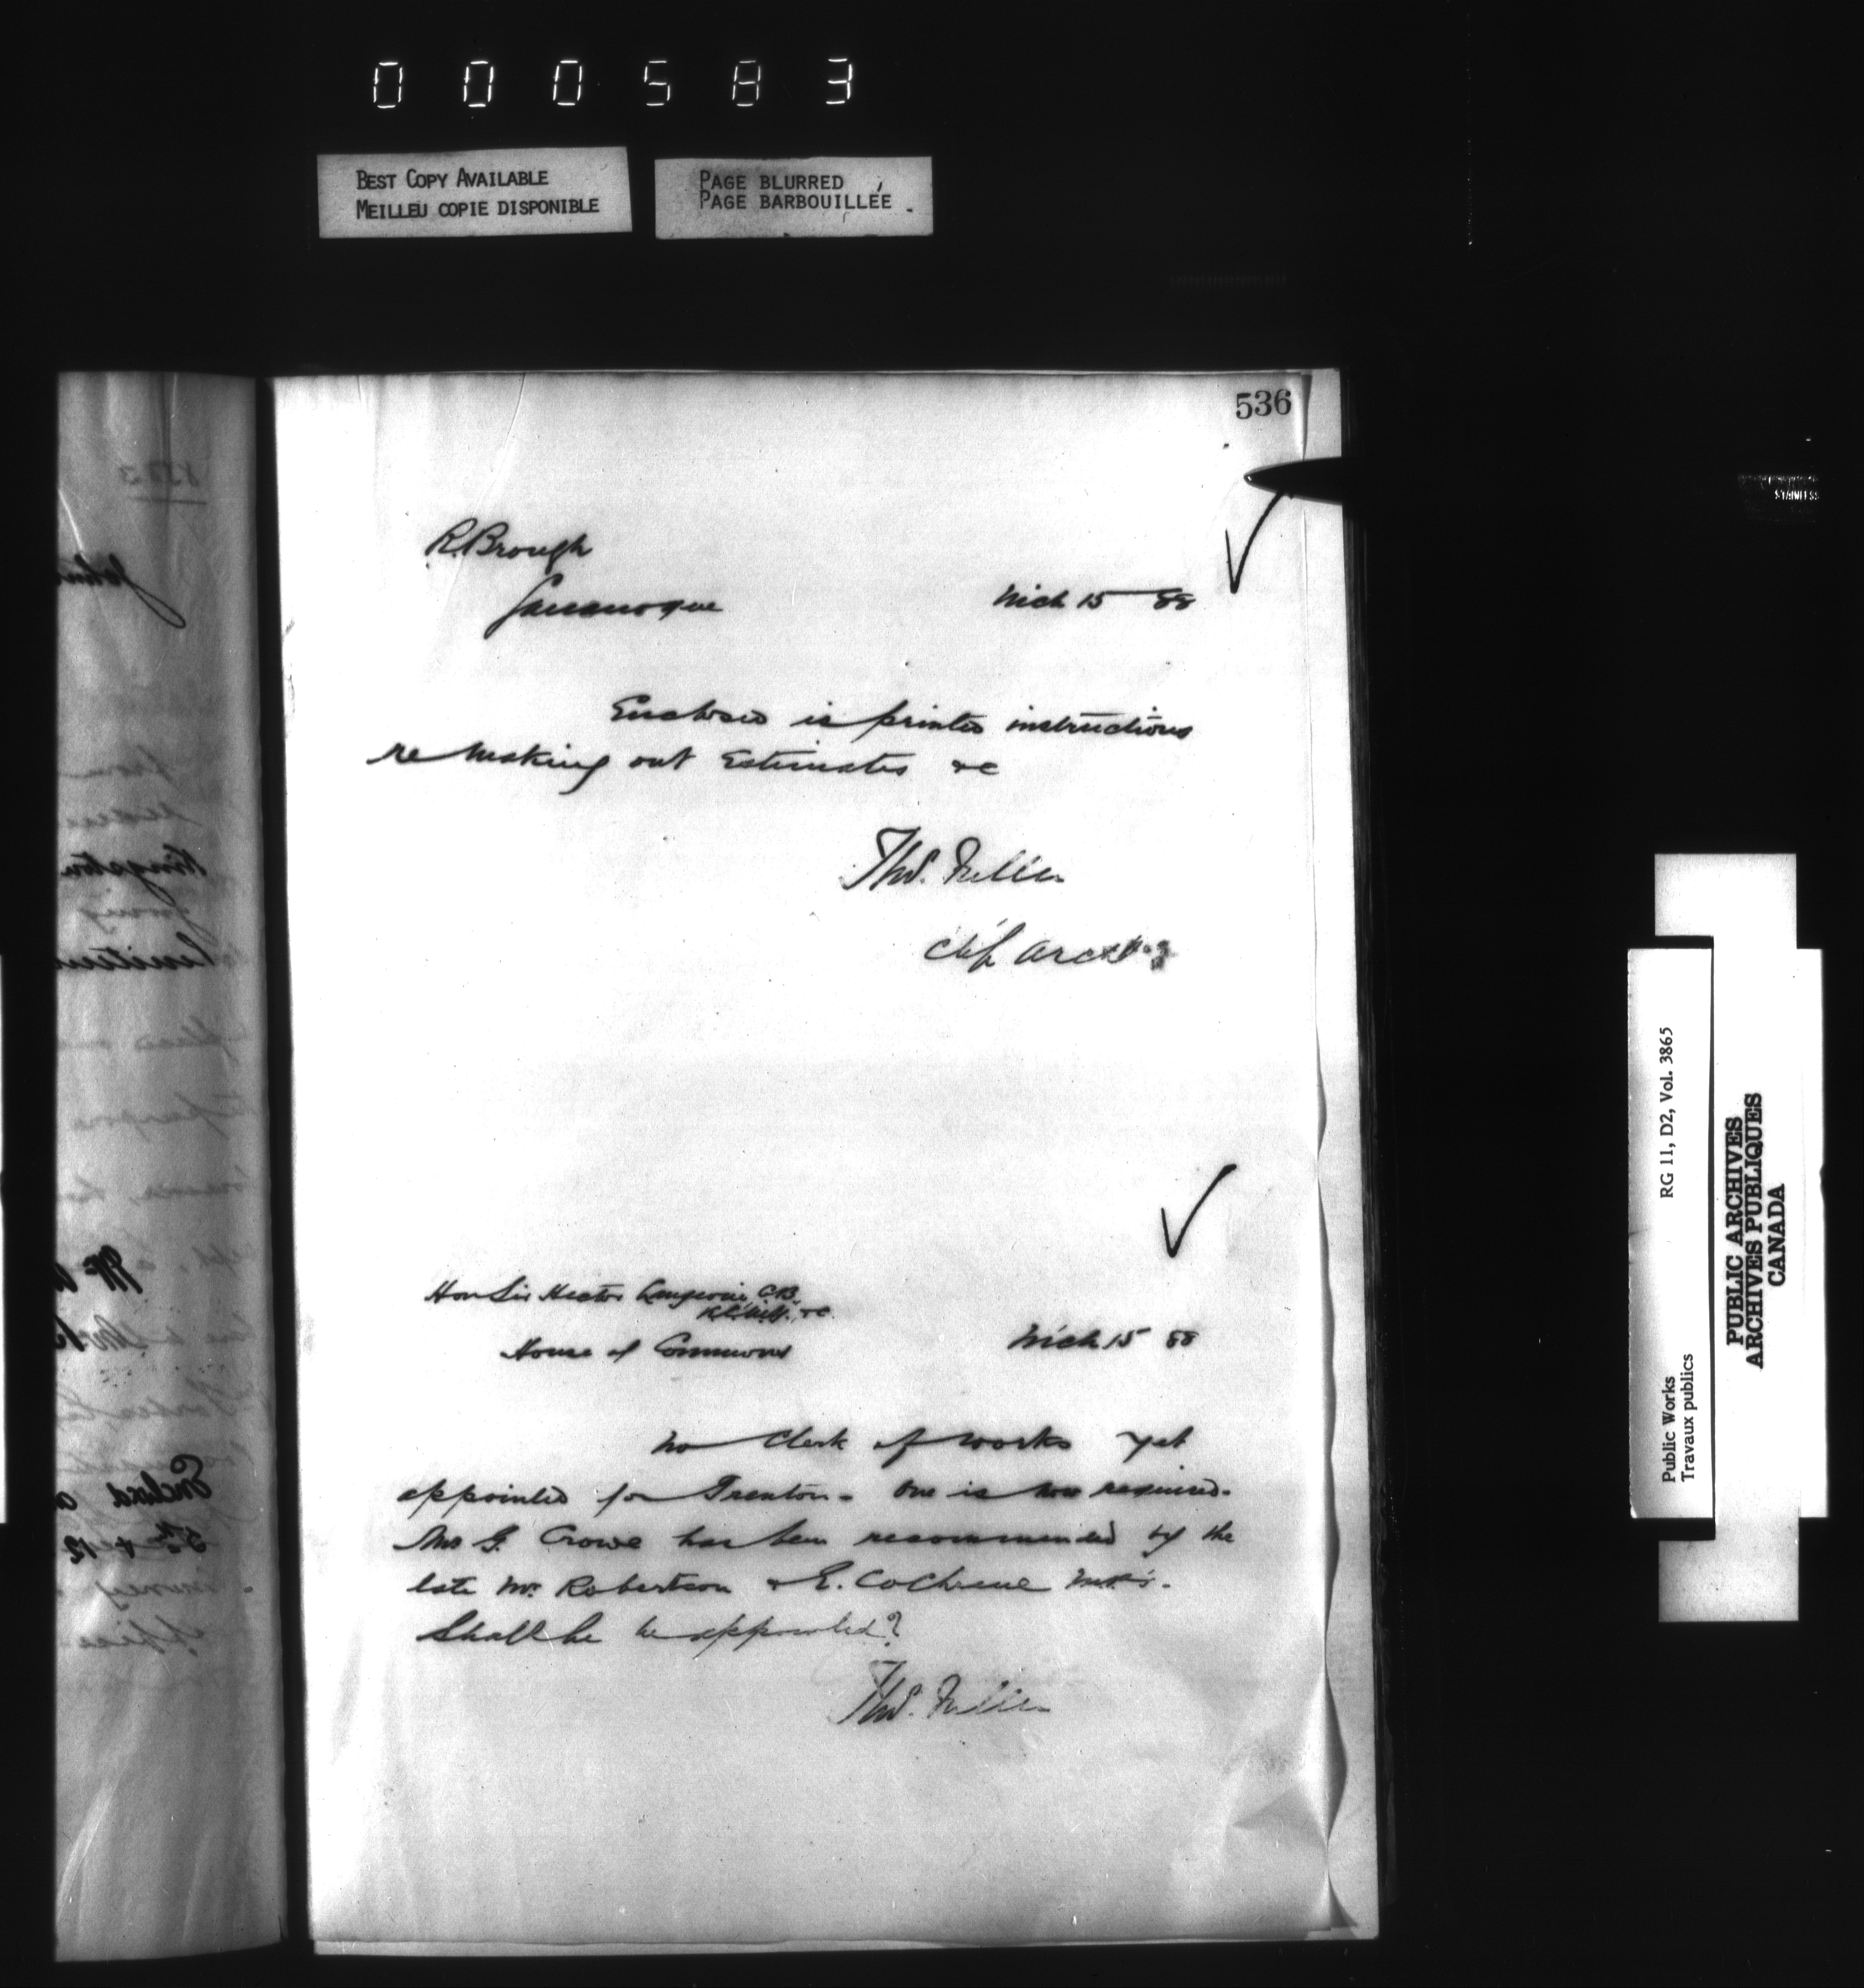 000583
BEST COPY AVAILABLE
MEILLEU COPIE DISPONIBLE
PAGE BLURRED
PAGE BARBOUILLÉE
536
R. Brough
Gananoque
Mch 15 88
Enclosed is printed instructions
re making out Estimates &c
Thos. Fuller
Chf Arct
Hon Sir Hector Langevin C.B.
K.C.M.G. &c
House of Commons
Mch 15 88
No Clerk of Works yet
appointed for Trenton - One is now required.
G. Crowe has been recommended by the
late Mr. Robertson & E. Cochrane M.P's.
Shall he be appointed?
Thos. Fuller
STAINLESS
Public Works
Travaux publics
RG 11, D2, Vol. 3865
PUBLIC ARCHIVES
ARCHIVES PUBLIQUES
CANADA